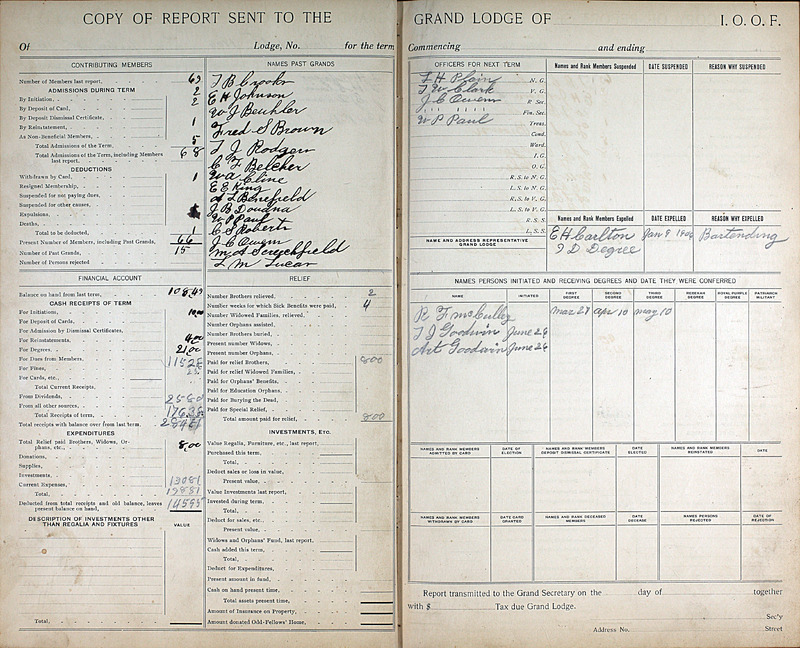 COPY OF REPORT SENT TO THE
Of Lodge, No. for the term
CONTRIBUTING MEMBERS
Number of Members last report, 63
ADMISSIONS DURING TERM 2
By Initiation, 2
By Deposit of Card,
By Deposit Dismissal Certificate, 1
By Reinstatement,
As Non-Beneficial Members,
Total Admissions of the Term, 5
Total Admissions of the Term, including Members last report, 68
DEDUCTIONS
Withdrawn by Card, 1
Resigned Membership,
Suspended for not paying dues,
Suspended for other causes,
Expulsions,
Deaths,
Total to be deducted, 1
Present Number of Members, including Past Grands, 66
Number of Past Grands, 15
Number of Persons rejected
NAMES PAST GRANDS
T B Crooks
E H Johnson
W J Beuhler
Fred S Brown
T J Rodgers
C F Belcher
W A Cline
E E King
A L Benefield
J B Douana
W P Paul
C S Roberts
J C Owens
L M Lucas
FINANCIAL ACCOUNT
Balance on hand from last term, 108.49
CASH RECEIPTS OF TERM
For Initiations, 10.00
For Deposit of Cards,
For Admission by Dismissal Certificates,
For Reinstatements, 4.00
For Degrees, 21.00
For Dues from Members, 115 28
For Fines, 25
For Cards, etc.,
Total Current Receipts,
From Dividends, 25 80
From all other sources,
Total Receipts of term,
Total receipts with balance over from last term,
EXPENDITURES
Total Relief paid Brothers, Widows, Orphans, etc., 8.00
Donations,
Supplies,
Investments,
Current Expenses, 130 81
Total,
Deducted from total receipts and old balance, leaves present balance on hand,
DESCRIPTION OF INVESTMENTS OTHER THAN REGALIA AND FIXTURES VALUE
Total,
RELIEF
Number Brothers relieved, 2
Number weeks for which Sick Benefits were paid, 4
Number Widowed Families, relieved,
Number Orphans assisted,
Number Brothers buried,
Present number Widows,
Present number Orphans,
Paid for relief Brothers, 8 00
Paid for relief Widowed Families,
Paid for Orphans' Benefits,
Paid for Education Orphans,
Paid for Burying the Dead,
Paid for Special Relief,
Total amount paid for relief, 8 00
INVESTMENTS, ETC.
Value Regalia, Furniture, etc., last report,
Purchased this term,
Total,
Deduct sales or loss in value,
Present value,
Value Investments last report,
Invested during term,
Total,
Deduct for sales, etc.,
Present value,
Widows and Orphans' Fund, last report,
Cash added this term,
Total,
Deduct for Expenditures,
Present amount in fund,
Cash on hand present time,
Total assets present time,
Amount of Insurance on Property,
Amount donated Odd-Fellows' Home,
GRAND LODGE OF I. O. O. F.
Commencing and ending
OFFICERS FOR NEXT TERM
L H Plain N. G.
T W Clark V. G.
J C Owens R Sec.
" " " Fin. Sec.
W P Paul Treas.
Cond.
Ward.
I. G.
O. G.
R. S. to N. G.
L. S. to N. G.
R. S. to V. G.
L. S. to V. G.
R. S. S.
L. S. S.
NAME AND ADDRESS REPRESENTATIVE GRAND LODGE
Names and Rank Members Suspended DATE SUSPENDED REASON WHY SUSPENDED
Names and Rank Members Expelled DATE EXPELLED REASON WHY EXPELLED
E H Carlton Jan 9 1906 Bartending
3 D Degree
NAMES PERSONS INITIATED AND RECEIVING DEGREES AND DATE THEY WERE CONFERRED
NAME INITIATED FIRST DEGREE SECOND DEGREE THIRD DEGREE REBEKAH DEGREE ROYAL PURPLE DEGREE PATRIARCH MILITANT
R F McCulley Mar 27 Apr 10 May 10
T J Goodwin June 26
Art Goodwin June 26
NAMES AND RANK MEMBERS ADMITTED BY CARD DATE OF ELECTION NAMES AND RANK MEMBERS DEPOSIT DISMISSAL CERTIFICATE DATE ELECTED NAMES AND RANK MEMBERS REINSTATED DATE
NAMES AND RANK MEMBERS WITHDRAWN BY CARD DATE CARD GRANTED NAMES AND RANK DECEASED MEMBERS DATE DECEASE NAMES PERSONS REJECTED DATE OF REJECTION
Report transmitted to the Grand Secretary on the day of together
with $ Tax due Grand Lodge.
Sec'y
Address No. Street